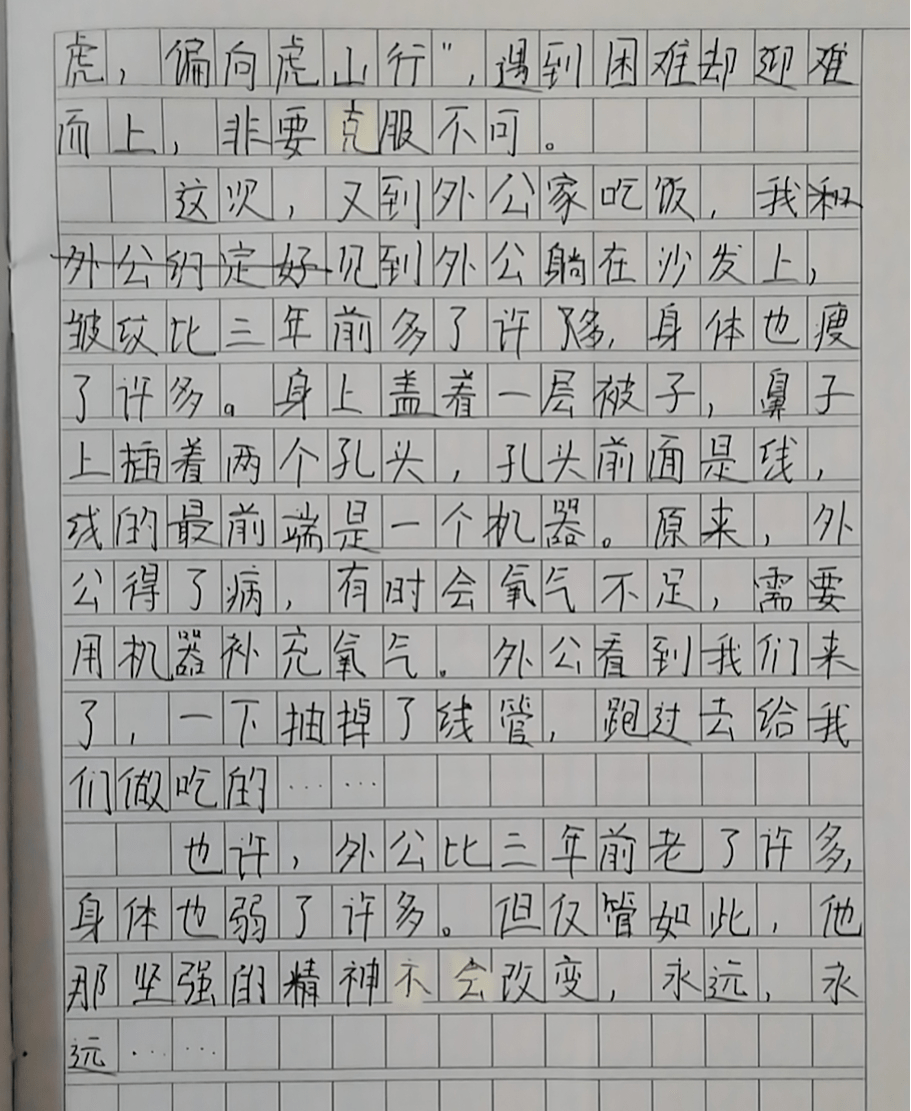 虎，偏向虎山行”，遇到困难却迎难
而上，非要克服不可。
这次，又到外公家吃饭，我和
外公约定好见到外公躺在沙发上，
皱纹比三年前多了许多，身体也瘦
了许多。身上盖着一层被子，鼻子
上插着两个孔头，孔头前面是线，
线的最前端是一个机器。原来，外
公得了病，有时会氧气不足，需要
用机器补充氧气。外公看到我们来
了，一下抽掉了线管，跑过去给我
们做吃的……
也许，外公比三年前老了许多，
身体也弱了许多。但仅管如此，他
那坚强的精神不会改变，永远，永
远……